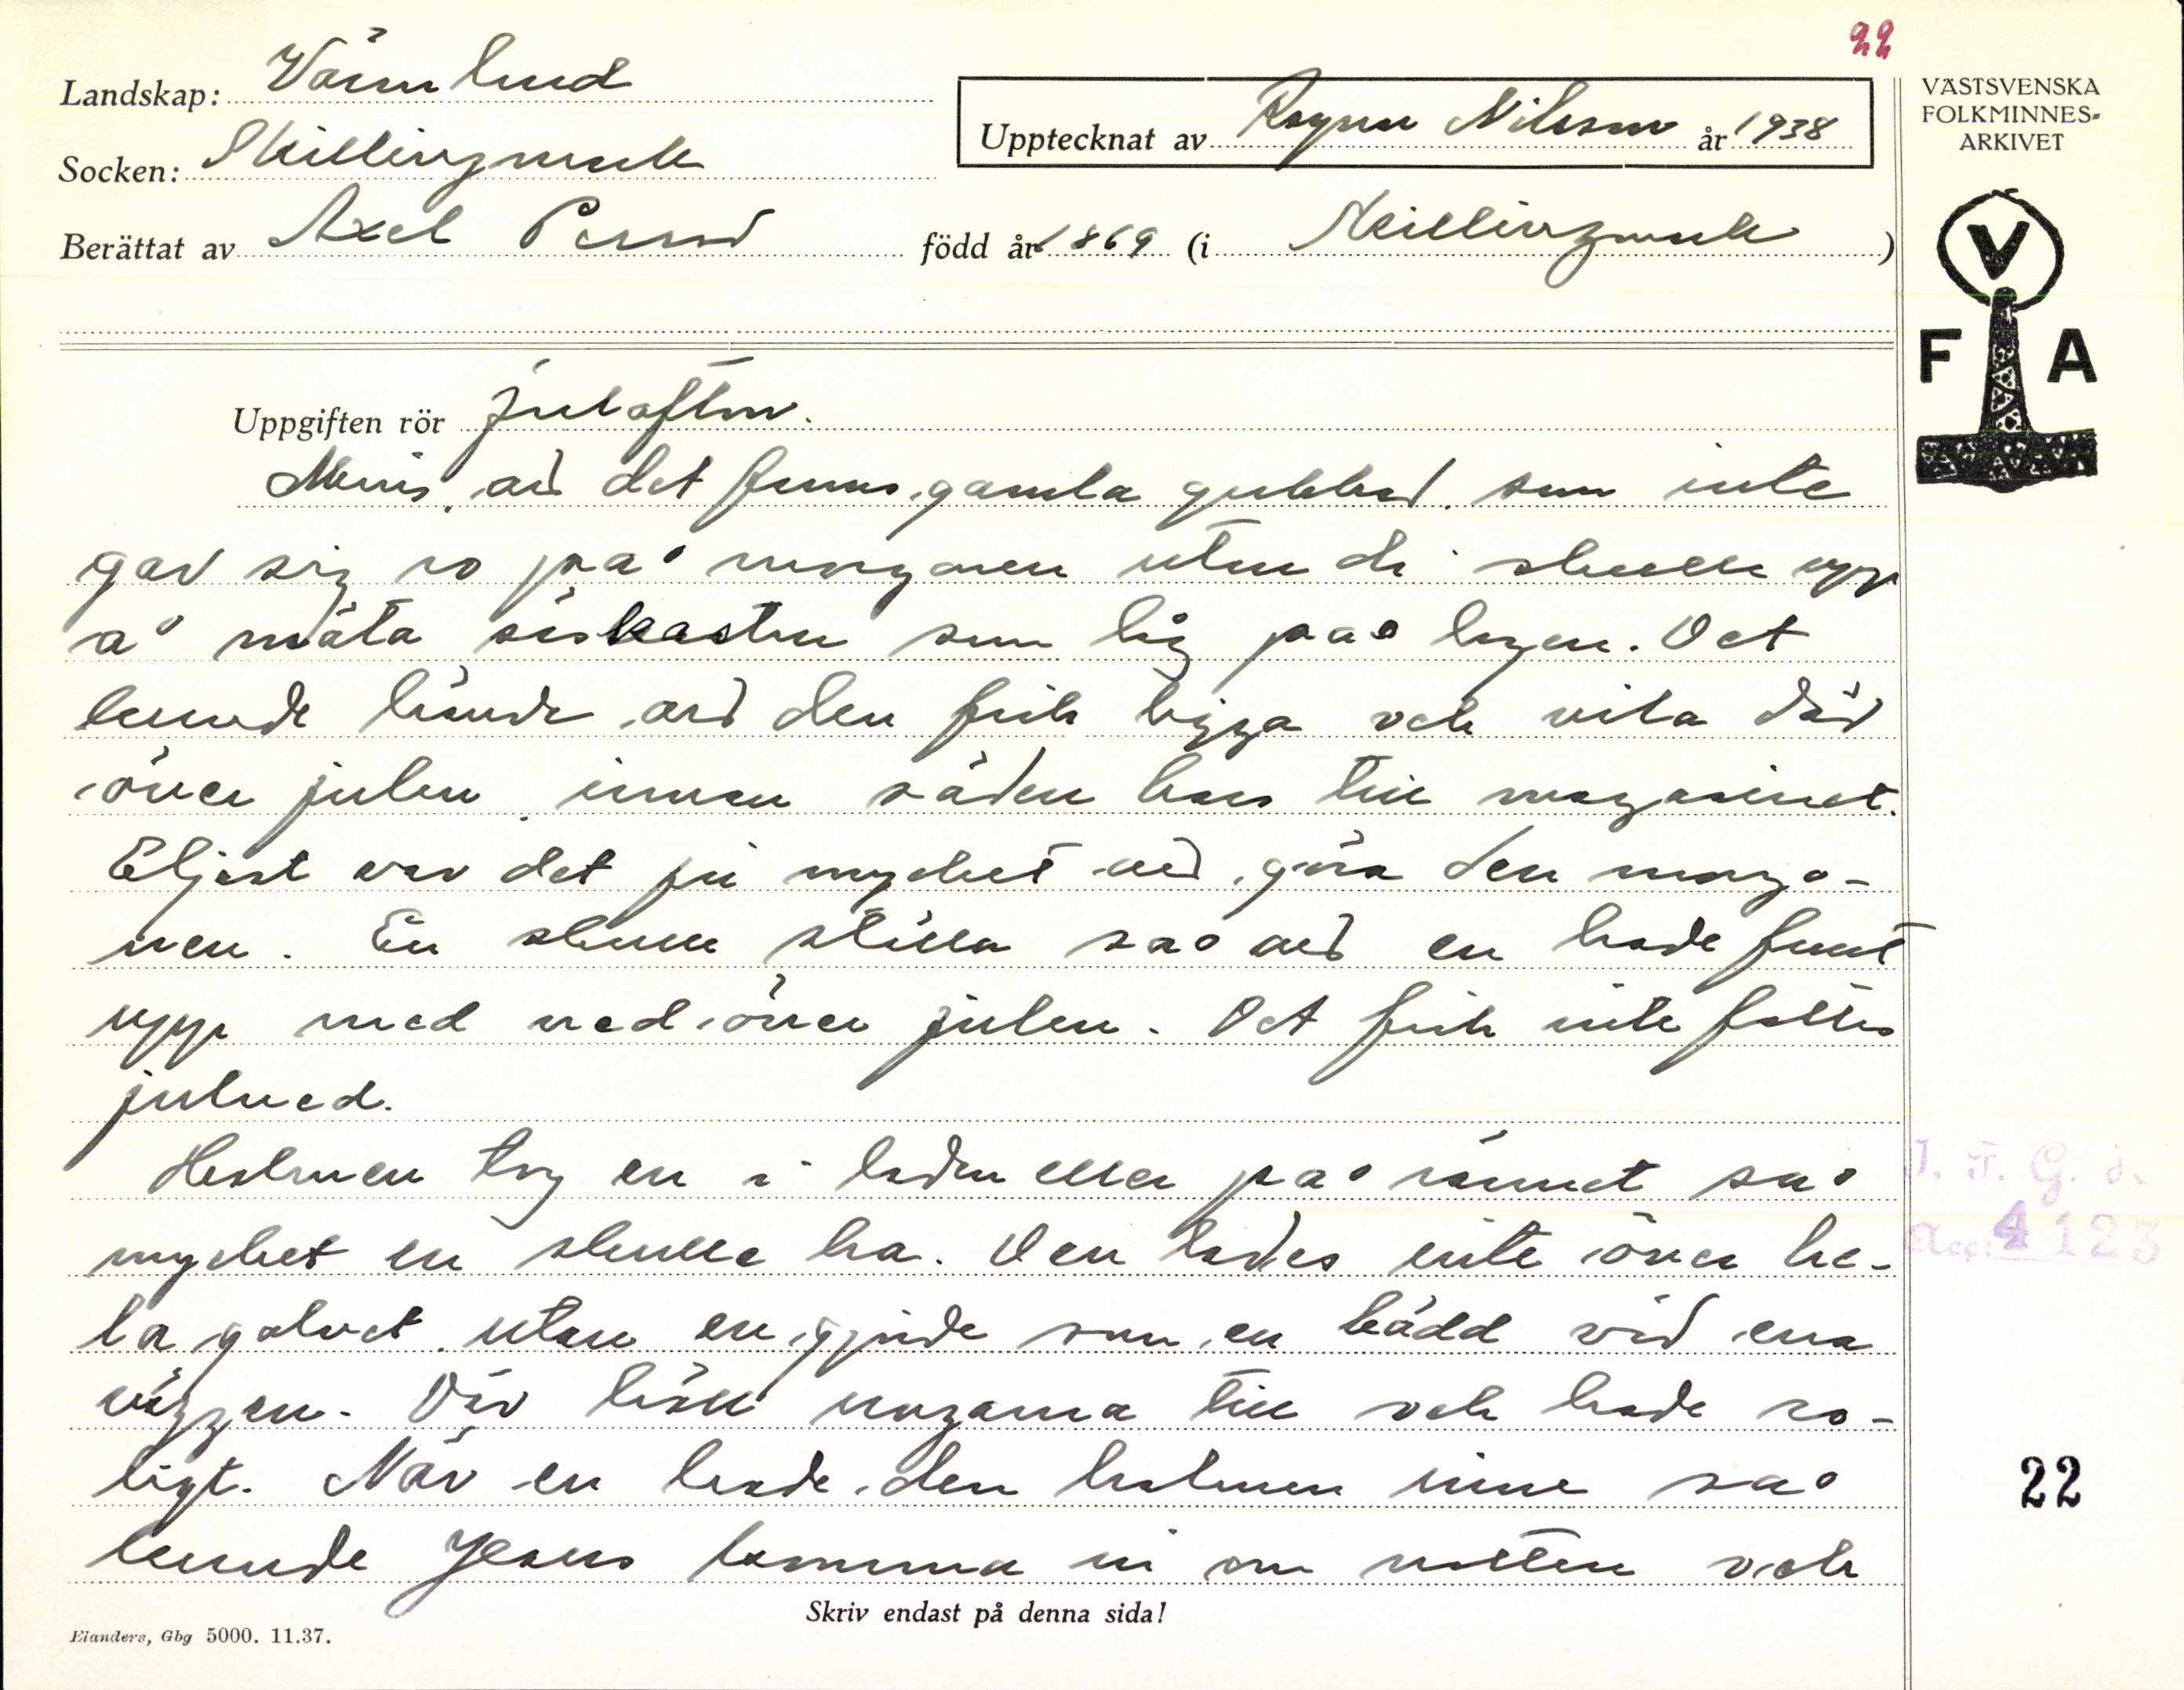 22
Landskap: Värmland
Socken: Skillingmark
Upptecknat av Ragnar Nilsson år 1938
Berättat av Axel Persson född år 1869 (i Skillingmark)
VÄSTSVENSKA
FOLKMINNES-
ARKIVET
V
F A
Uppgiften rör julafton.
Minns att det fanns gamla gubbar som inte
gav sig ro på morgonen utan di skulle upp
å mäta såskasten som låg på logen. Det
kunde hända att den fick ligga och vila där
över julen innan säden bars till magasinet.
Eljest var det ju mycket att göra den morgo-
nen. En skulle ställa så att en hade fullt
upp med ved över julen. Det fick inte fattas
julved.
Halmen tog en i ladan eller på rännet så
mycket en skulle ha. Den lades inte över he-
la golvet utan en gjorde som en bädd vid ena
väggen. Där höll ungarna till och hade ro-
ligt. När en hade den halmen inne så
kunde Jesus komma in om natten och
I. F. G. H.
Acc: 4123
22
Skriv endast på denna sida!
Elanders, Gbg 5000. 11.37.